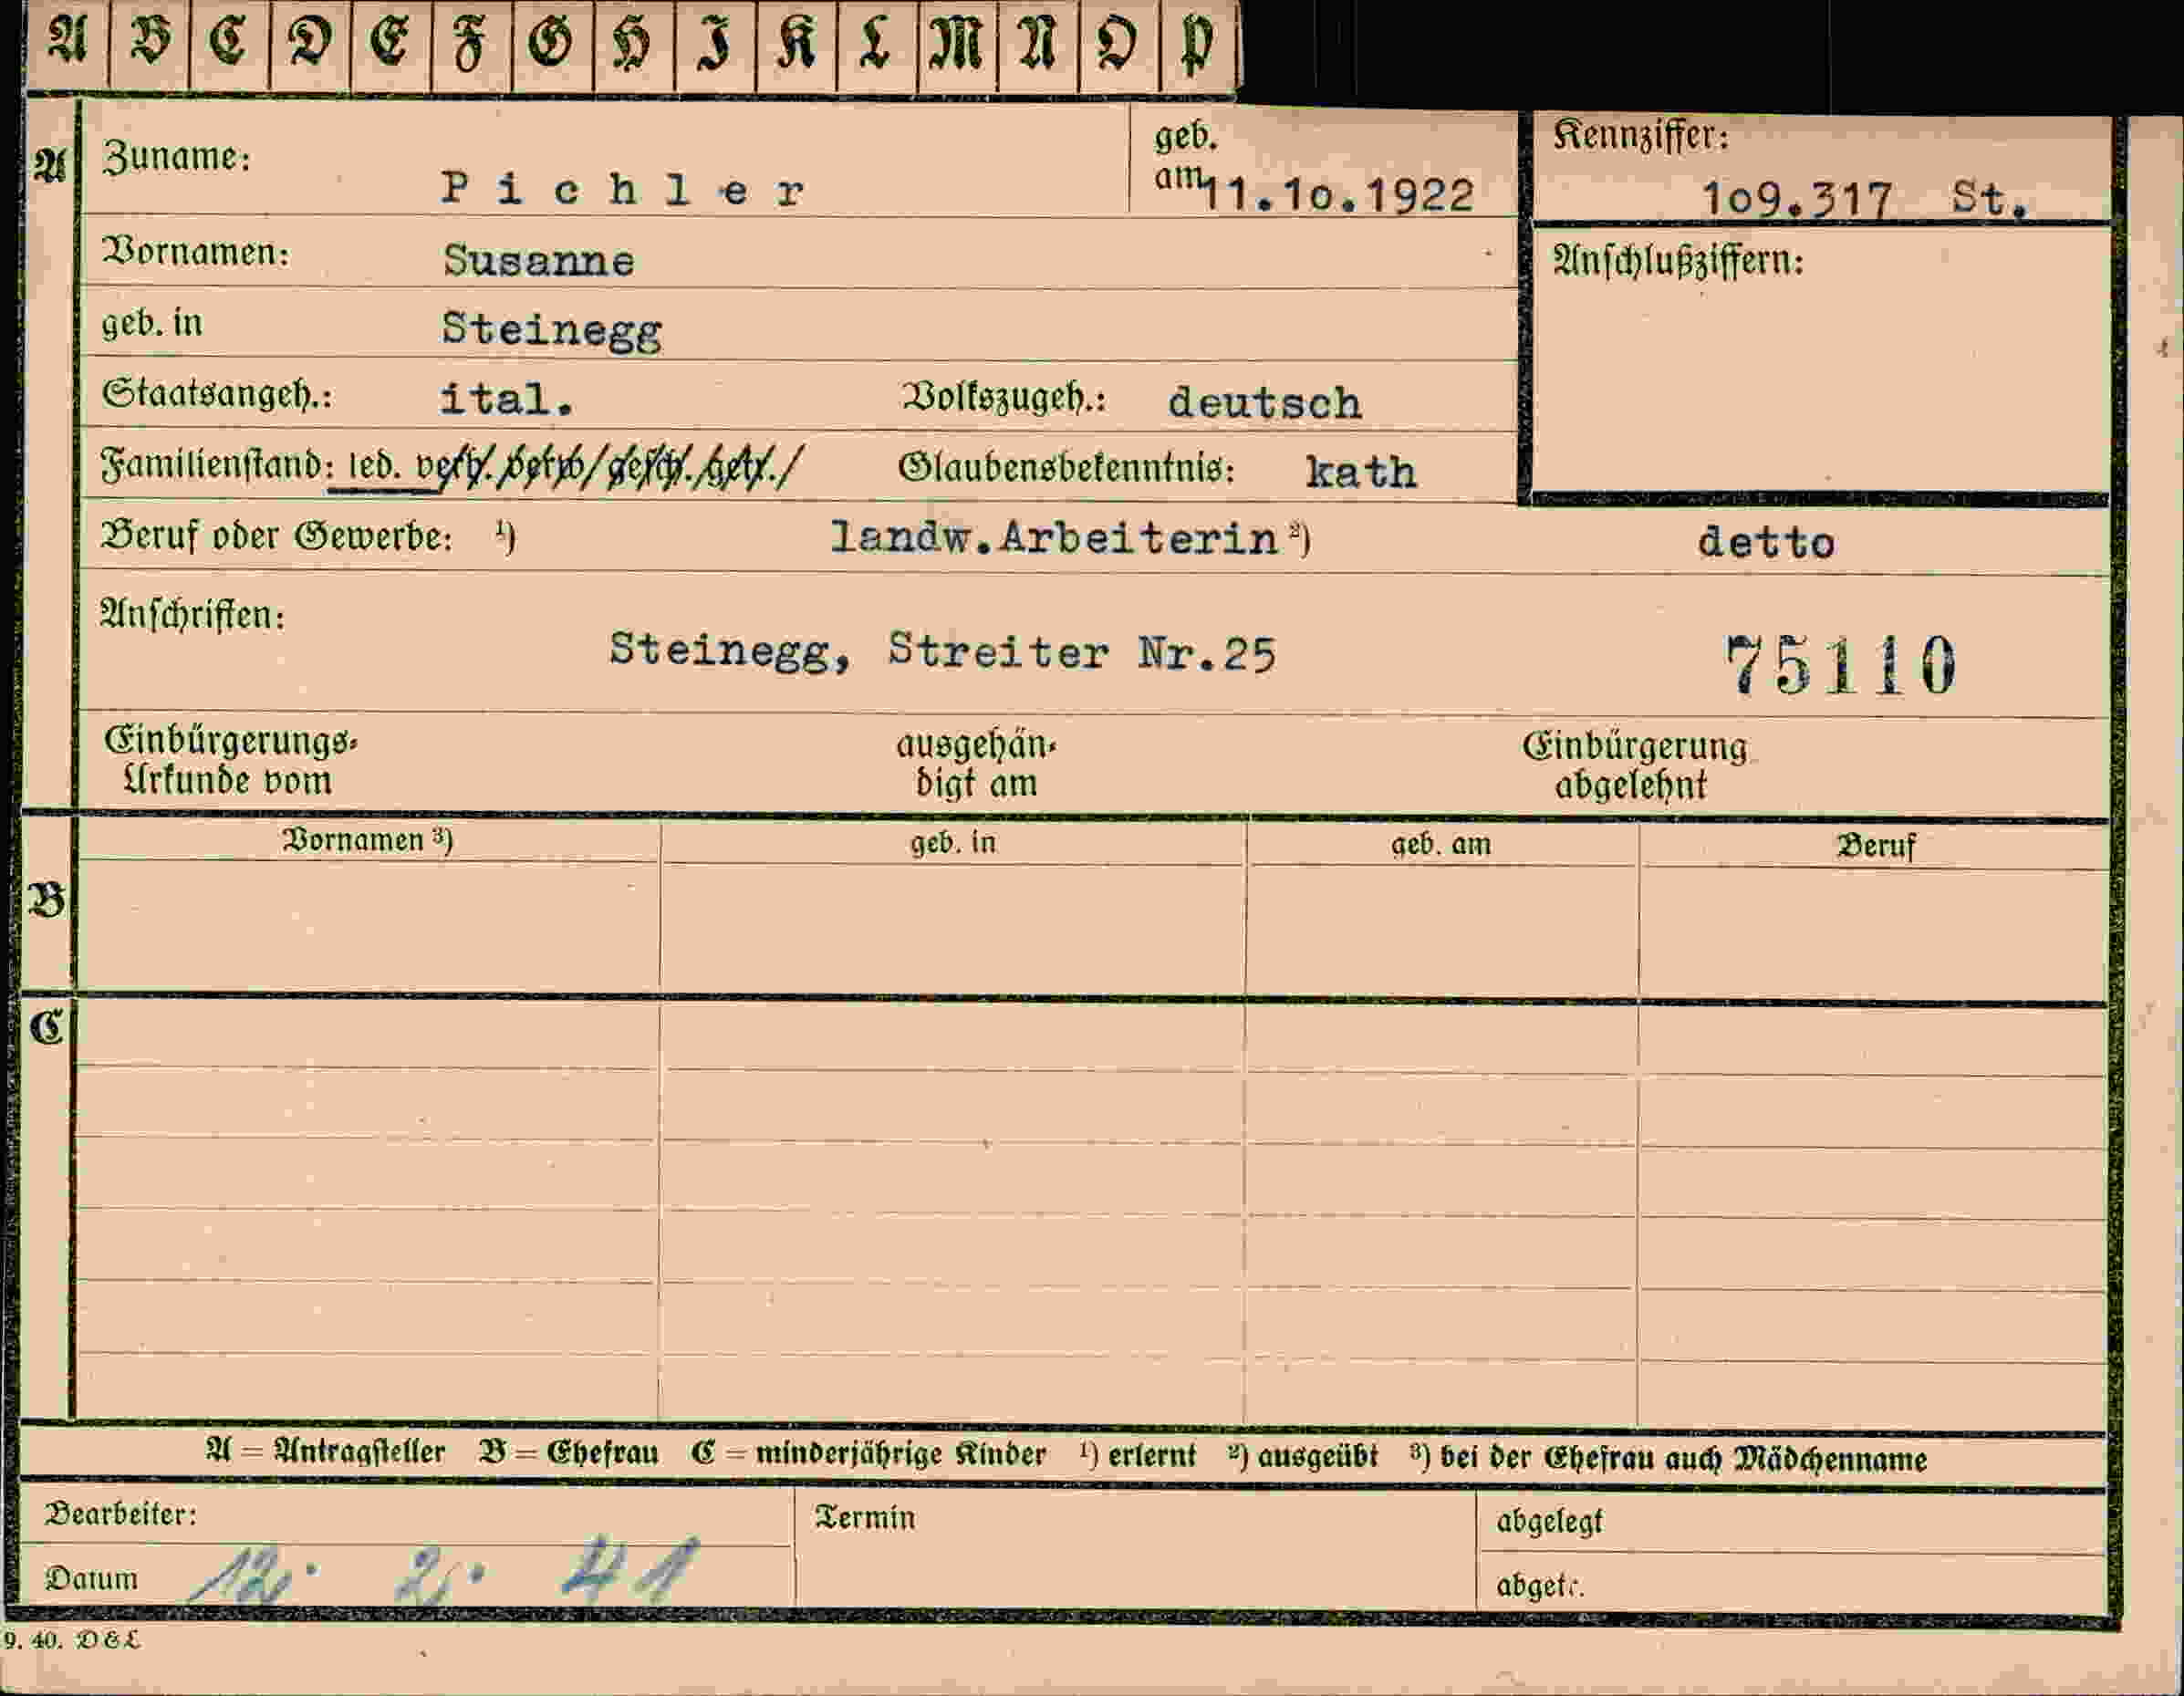 A B C D E F G H I K L M N O P
A
Zuname: Pichler
geb. am 11.10.1922
Kennziffer: 1o9.317 St.
Vornamen: Susanne
Anschlußziffern:
geb. in Steinegg
Staatsangeh.: ital. Volkszugeh.: deutsch
Familienstand: led. verh. verw. gesch. getr. Glaubensbekenntnis: kath
Beruf oder Gewerbe: ¹) landw.Arbeiterin ²) detto
Anschriften: Steinegg, Streiter Nr.25 75110
Einbürgerungs-Urkunde vom ausgehändigt am Einbürgerung abgelehnt
B
Vornamen ³) geb. in geb. am Beruf
C
A = Antragsteller B = Ehefrau C = minderjährige Kinder ¹) erlernt ²) ausgeübt ³) bei der Ehefrau auch Mädchenname
Bearbeiter: Termin abgelegt
Datum 12. 2. 41 abgetr.
9. 40. D&L